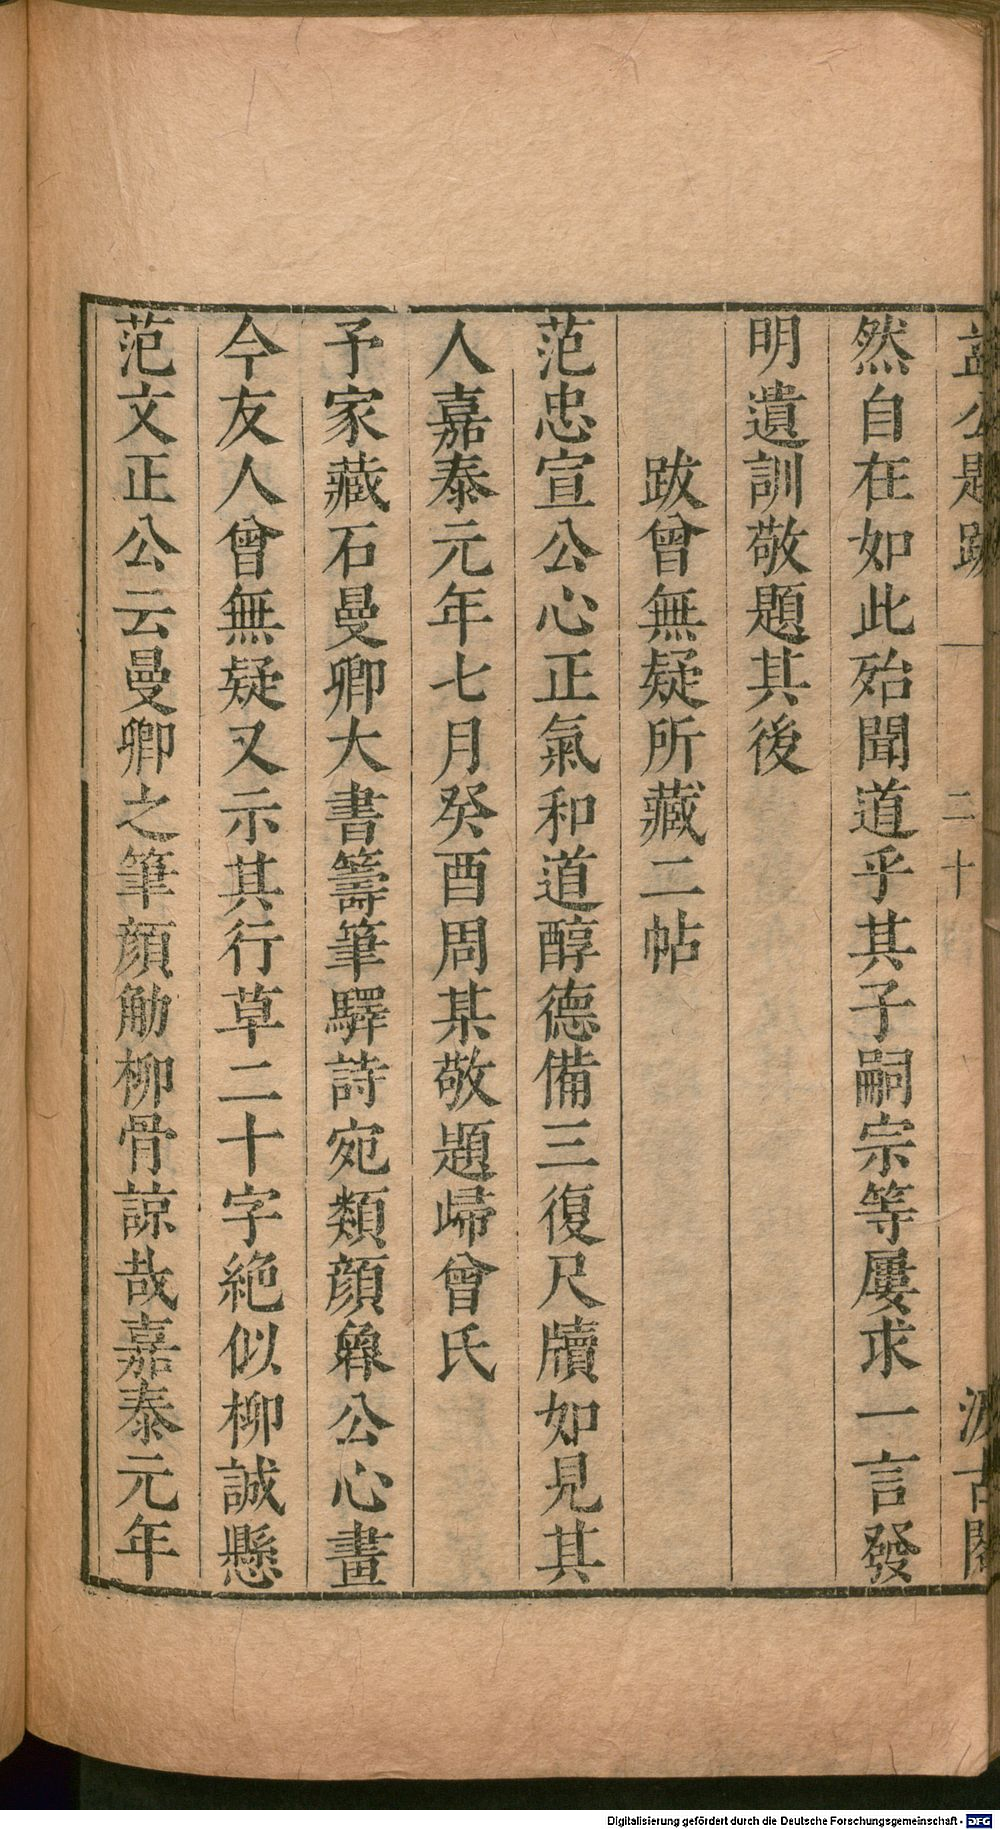 益公題跋 二十 汲古閣
然自在如此殆聞道乎其子嗣宗等屢求一言發
明遺訓敬題其後
跋曾無疑所藏二帖
范忠宣公心正氣和道醇德備三復尺牘如見其
人嘉泰元年七月癸酉周某敬題歸曾氏
予家藏石曼卿大書籌筆驛詩宛類顔魯公心畫
今友人曾無疑又示其行草二十字絶似柳誠懸
范文正公云曼卿之筆顔觔柳骨諒哉嘉泰元年
Digitalisierung gefördert durch die Deutsche Forschungsgemeinschaft - DFG